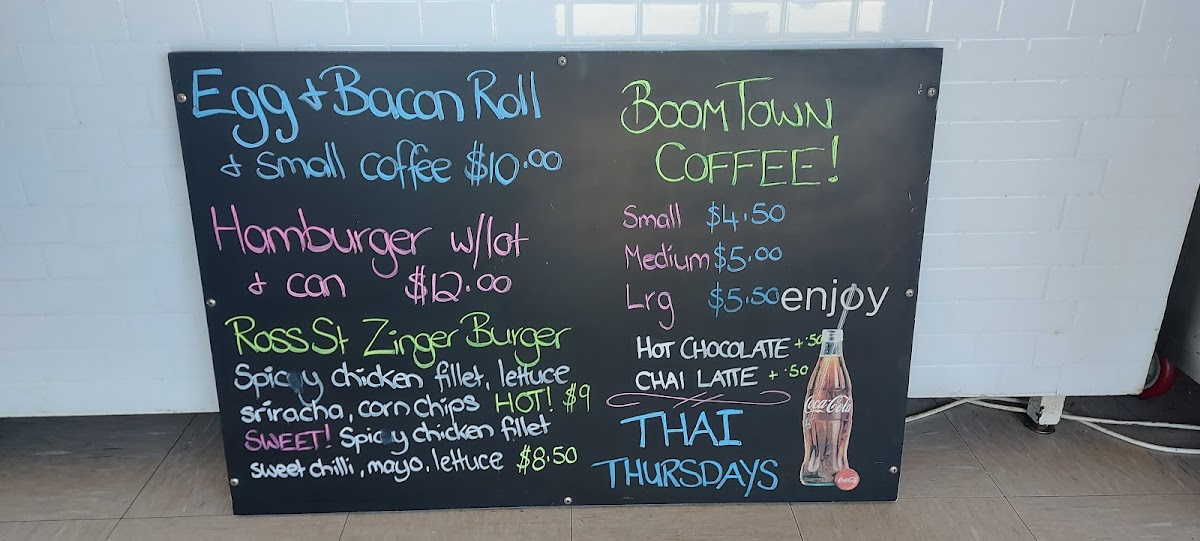 Egg & Bacon Roll
& small coffee $10.00
Hamburger w/lot
& can $12.00
Ross St Zinger Burger
Spicy chicken fillet, lettuce
sriracha, corn chips HOT! $9
SWEET! Spicy chicken fillet
sweet chilli, mayo, lettuce $8.50
BOOMTOWN
COFFEE!
Small $4.50
Medium $5.00
Lrg $5.50
enjoy
HOT CHOCOLATE +.50
CHAI LATTE +.50
THAI
THURSDAYS
Coca-Cola
Coca-Cola